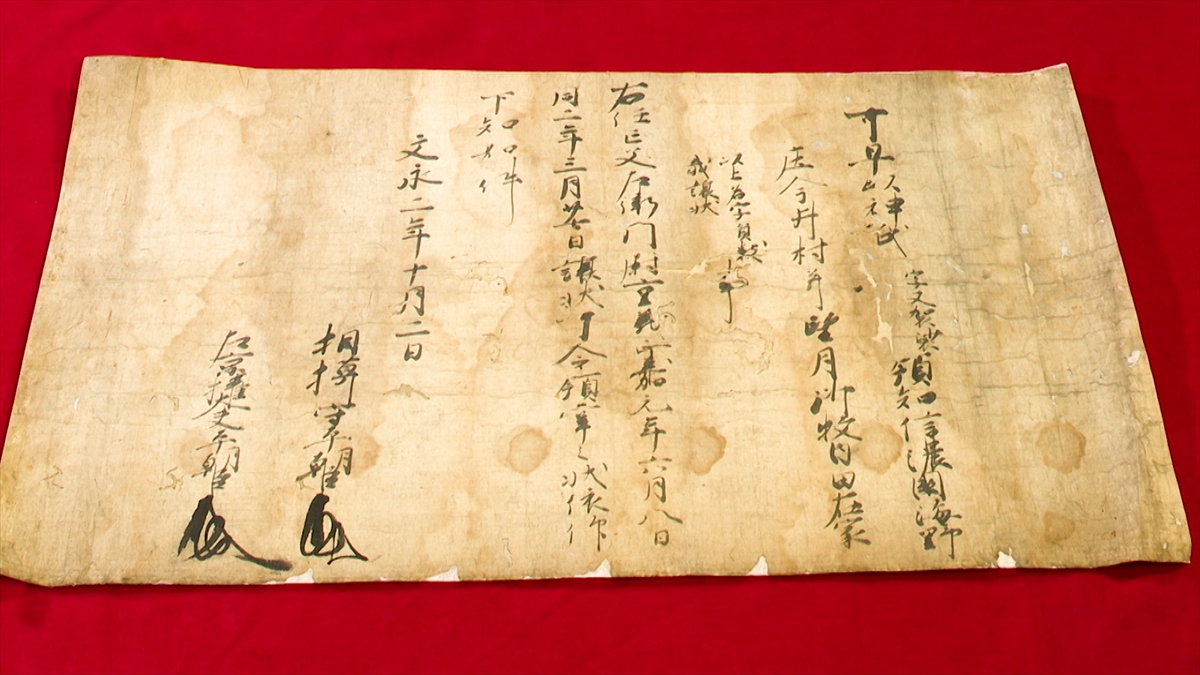 可早以神氏 領知信濃国海野
庄今井村并望月御牧内田在家
以上 員数 事
載譲状
右任亡父左衛門尉 嘉元年六月八日
同二年三月 日譲状 可令領掌之状依仰
下知如件
文永二年十月二日
相模守平朝臣
左京権大夫平朝臣